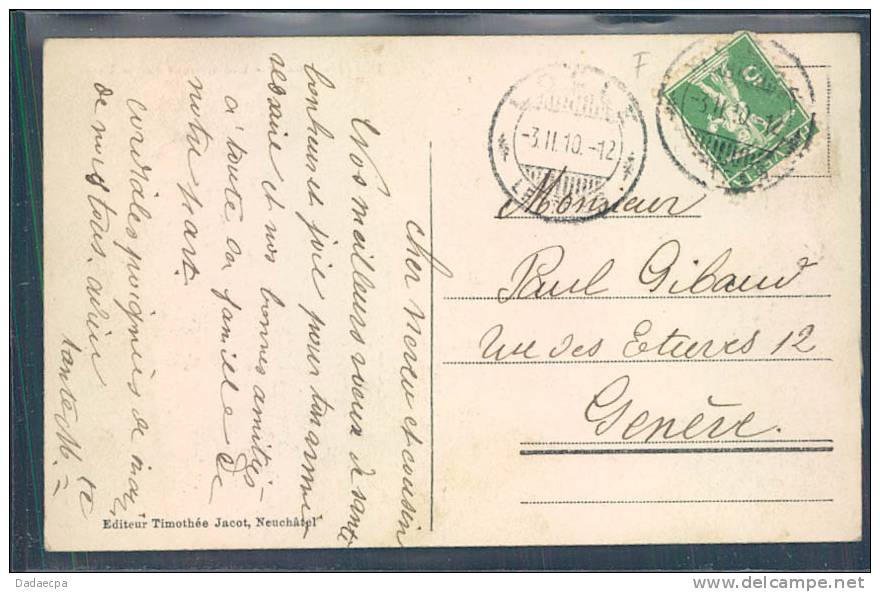 cher neveu et cousin
Nos meilleurs voeux de santé
bonheur et joie pour ton anni-
et nos bonnes amitiés
à toute la famille de
notre part.
cordiales poignées de main
de nous tous.
tante M.
Editeur Timothée Jacot, Neuchâtel
F
-3.II.10.-12
-3.II.10.-12
Monsieur
Paul Gibaud
rue des Etuves 12
Genève.
Dadaecpa
delcampe.net